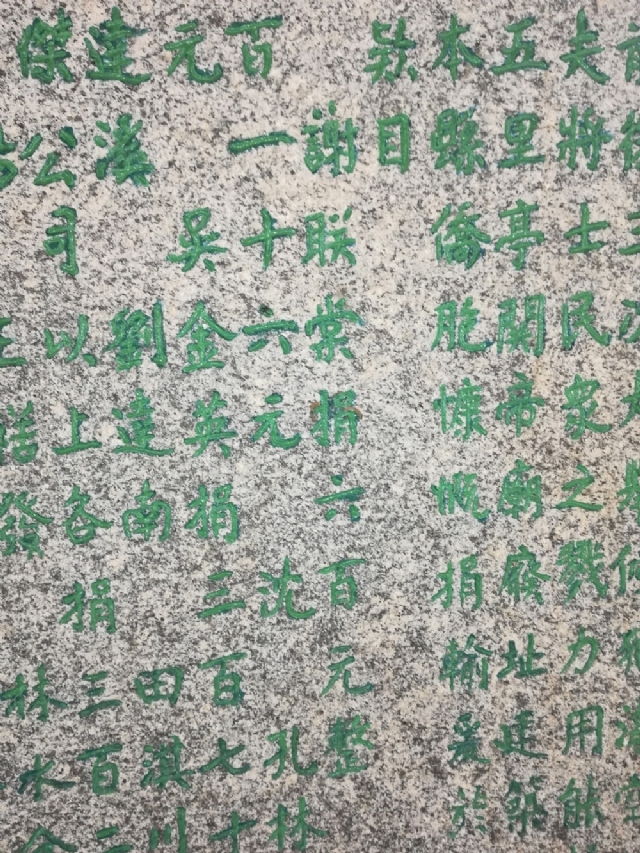 夫將士民衆之戮力用能
五里亭關帝廟廢址建築
本縣僑胞慷慨捐輸爰於
欵日
謝联棠捐六百元整
百一十六元 沈孔林
元 吳金英捐三百七十
達 劉達南 田淇川
傑公司以上各捐三百
發 林水金